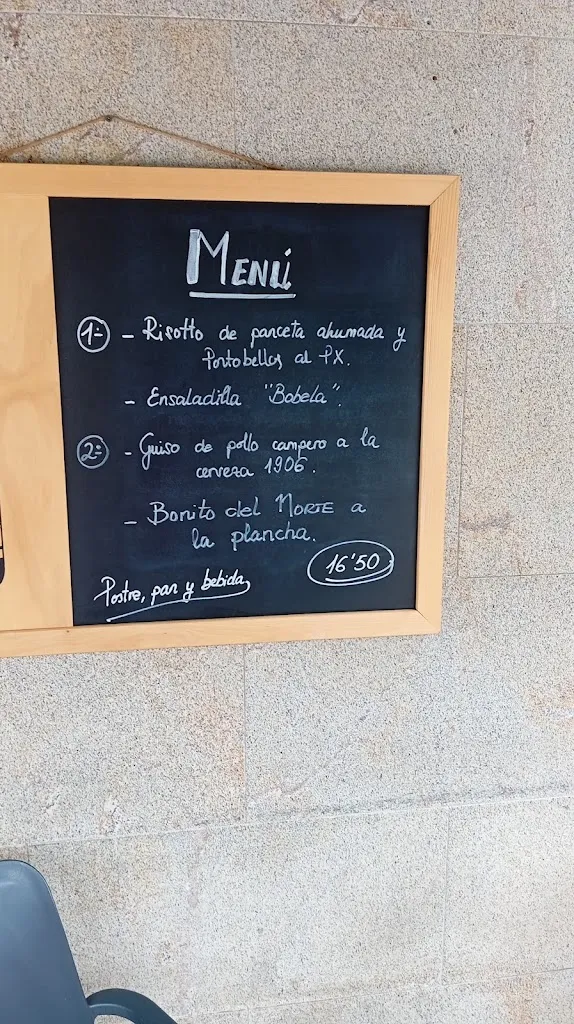 MENÚ
1º - Risotto de panceta ahumada y
Portobellos al PX.
- Ensaladilla "Babela".
2º - Guiso de pollo campero a la
cerveza 1906.
- Bonito del NORTE a
la plancha.
16'50
Postre, pan y bebida